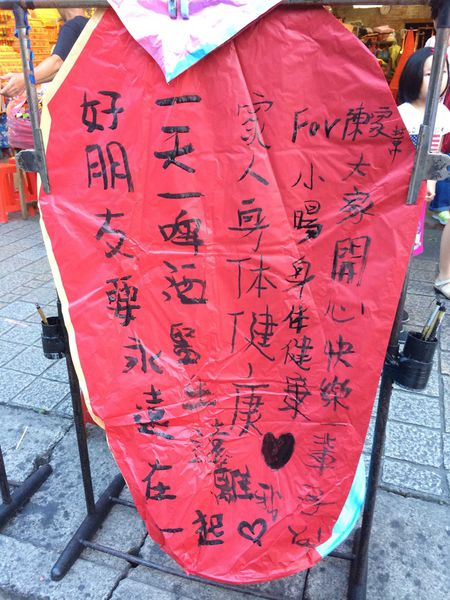 大家開心快樂一輩子
For 陳家
小暘身体健康
家人身体健康♥
一天一啤酒醫生遠離我♡
好朋友要永遠在一起